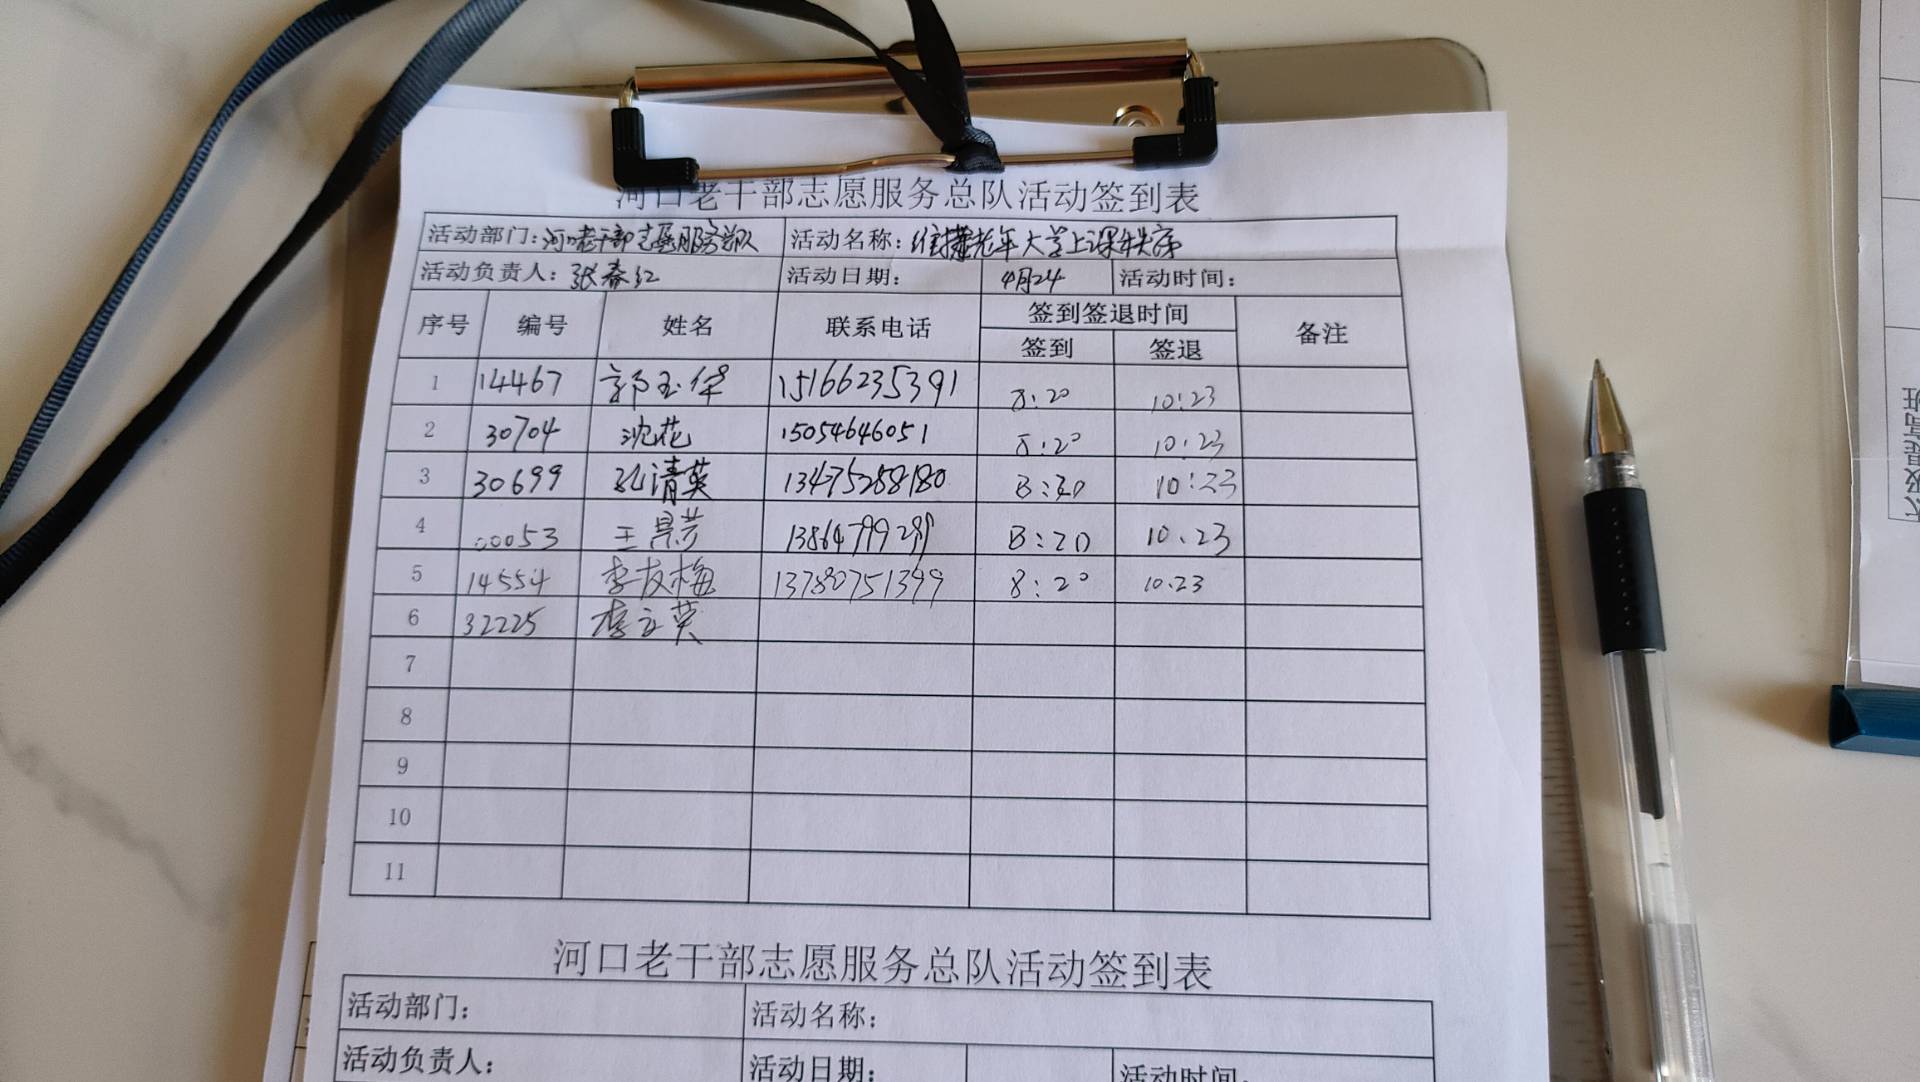 河口老干部志愿服务总队活动签到表
活动部门：河口老干部志愿服务总队 活动名称：维护老年大学上课秩序
活动负责人：张春红 活动日期： 4月24 活动时间：
序号 编号 姓名 联系电话 签到签退时间 备注
签到 签退
1 14467 郭玉华 15166235391 8:20 10:23
2 30704 沈花 15054646051 8:20 10:23
3 30699 孔清英 13475288180 8:20 10:23
4 00053 王景芳 13864799289 8:20 10:23
5 14554 李友梅 13780751399 8:20 10:23
6 32225 李立英
7
8
9
10
11
河口老干部志愿服务总队活动签到表
活动部门： 活动名称：
活动负责人： 活动日期： 活动时间：
大级提高班